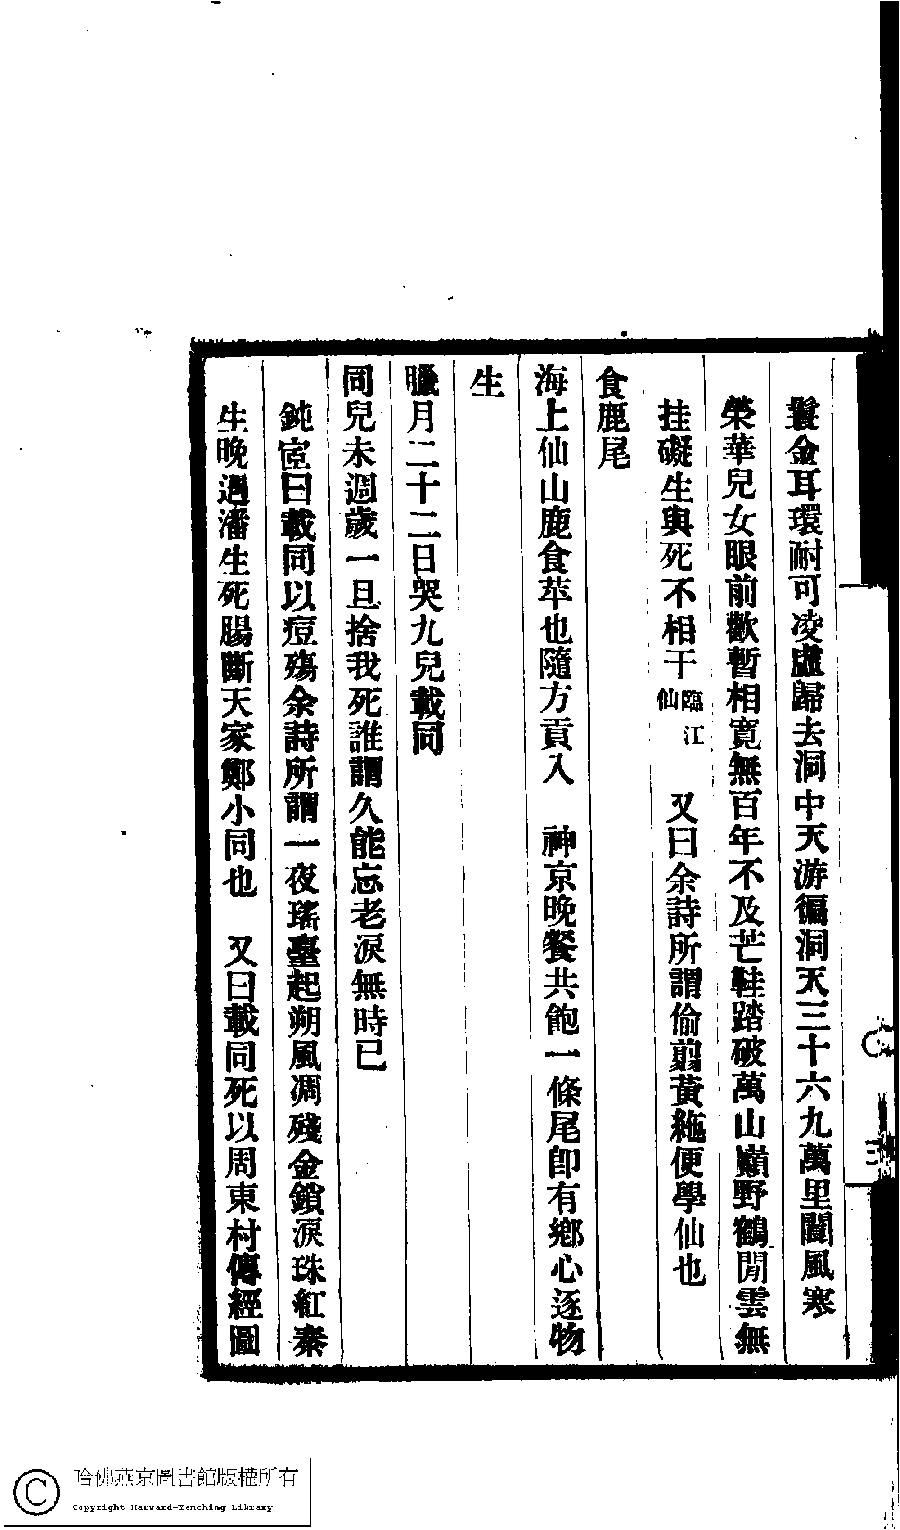 鬟金耳環耐可凌虛歸去洞中天游徧洞天三十六九萬里閶風寒
榮華兒女眼前歡暫相寬無百年不及芒鞋踏破萬山巔野鶴閒雲無
挂礙生與死不相干臨江仙　又曰余詩所謂偷翦黃絁便學仙也
食鹿尾
海上仙山鹿食苹也隨方貢入　神京晚餐共飽一條尾卽有鄉心逐物
生
臘月二十二日哭九兒載同
同兒未週歲一旦捨我死誰謂久能忘老淚無時已
鈍宧曰載同以痘殤余詩所謂一夜瑤臺起朔風凋殘金鎖淚珠紅秦
生晚遇潘生死腸斷天家鄭小同也　又曰載同死以周東村傳經圖
三
哈佛燕京圖書館版權所有
Copyright Harvard-Yenching Library